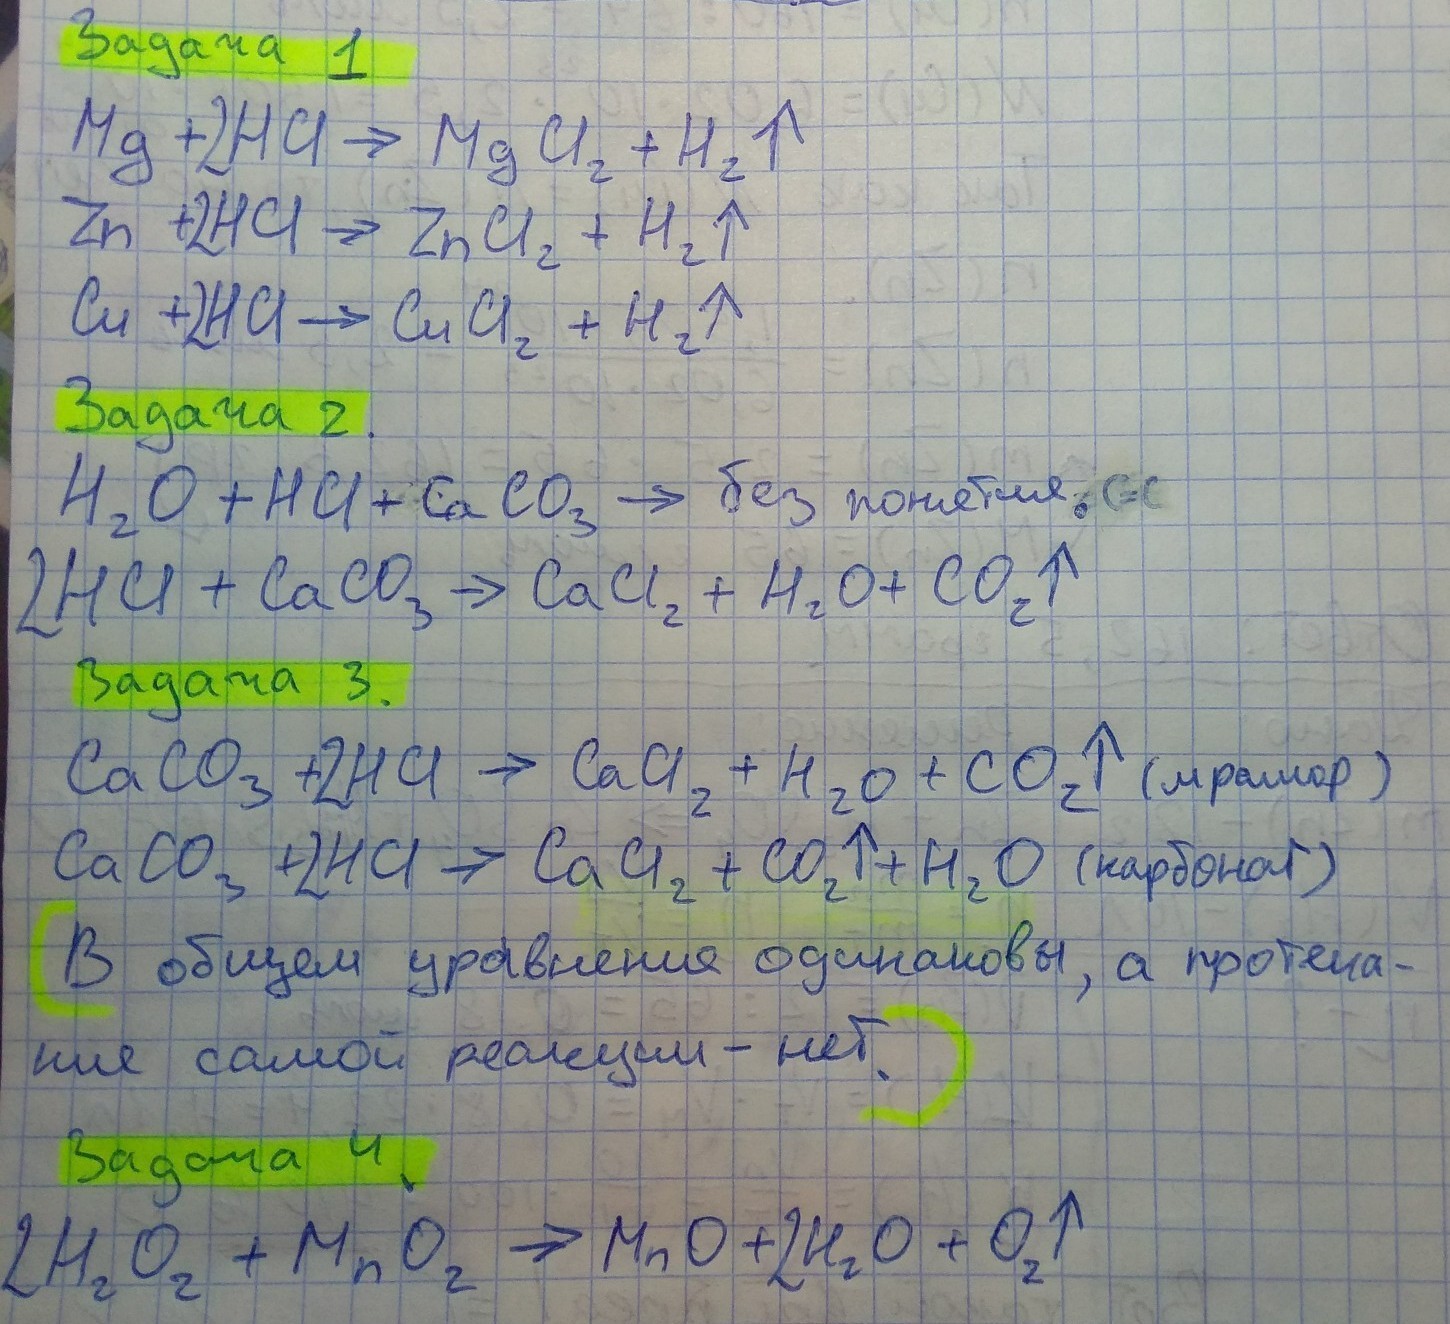 Задача 1
Mg + 2HCl → MgCl₂ + H₂↑
Zn + 2HCl → ZnCl₂ + H₂↑
Cu + 2HCl → CuCl₂ + H₂↑
Задача 2.
H₂O + HCl + CaCO₃ → без понятия.
2HCl + CaCO₃ → CaCl₂ + H₂O + CO₂↑
Задача 3.
CaCO₃ + 2HCl → CaCl₂ + H₂O + CO₂↑ (мрамор)
CaCO₃ + 2HCl → CaCl₂ + CO₂↑ + H₂O (карбонат)
В общем уравнения одинаковы, а протека-
ние самой реакции – нет.
Задача 4.
2H₂O₂ + MnO₂ → MnO + 2H₂O + O₂↑